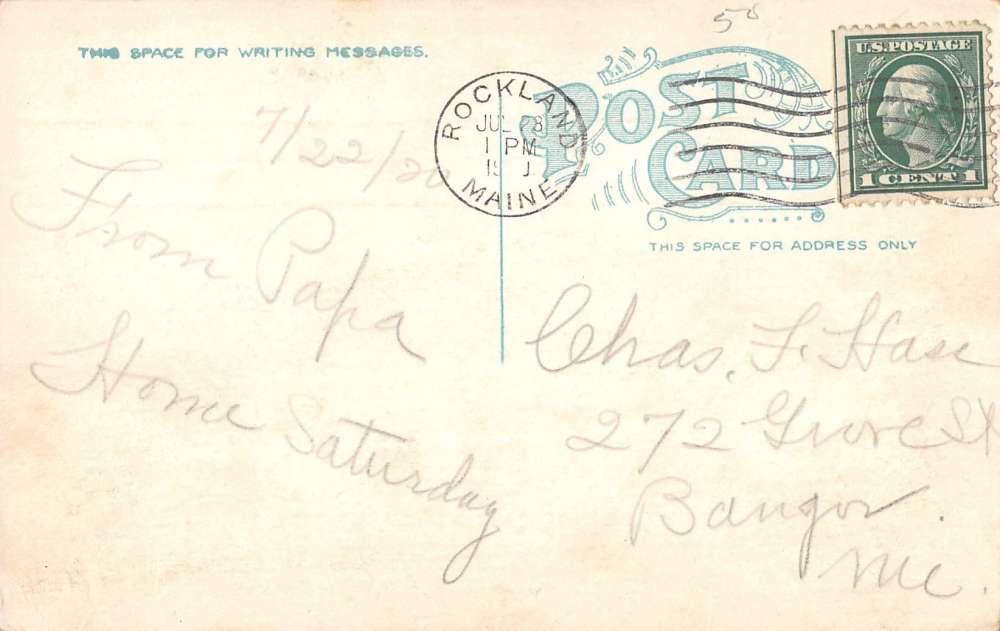 50
THIS SPACE FOR WRITING MESSAGES.
7/22/20
From Papa
Home Saturday
ROCKLAND
JUL 8
1 PM
19
MAINE
POST
CARD
THIS SPACE FOR ADDRESS ONLY
U.S. POSTAGE
1 CENT 1
Chas. F. Hase
272 Grove St
Bangor.
Me.